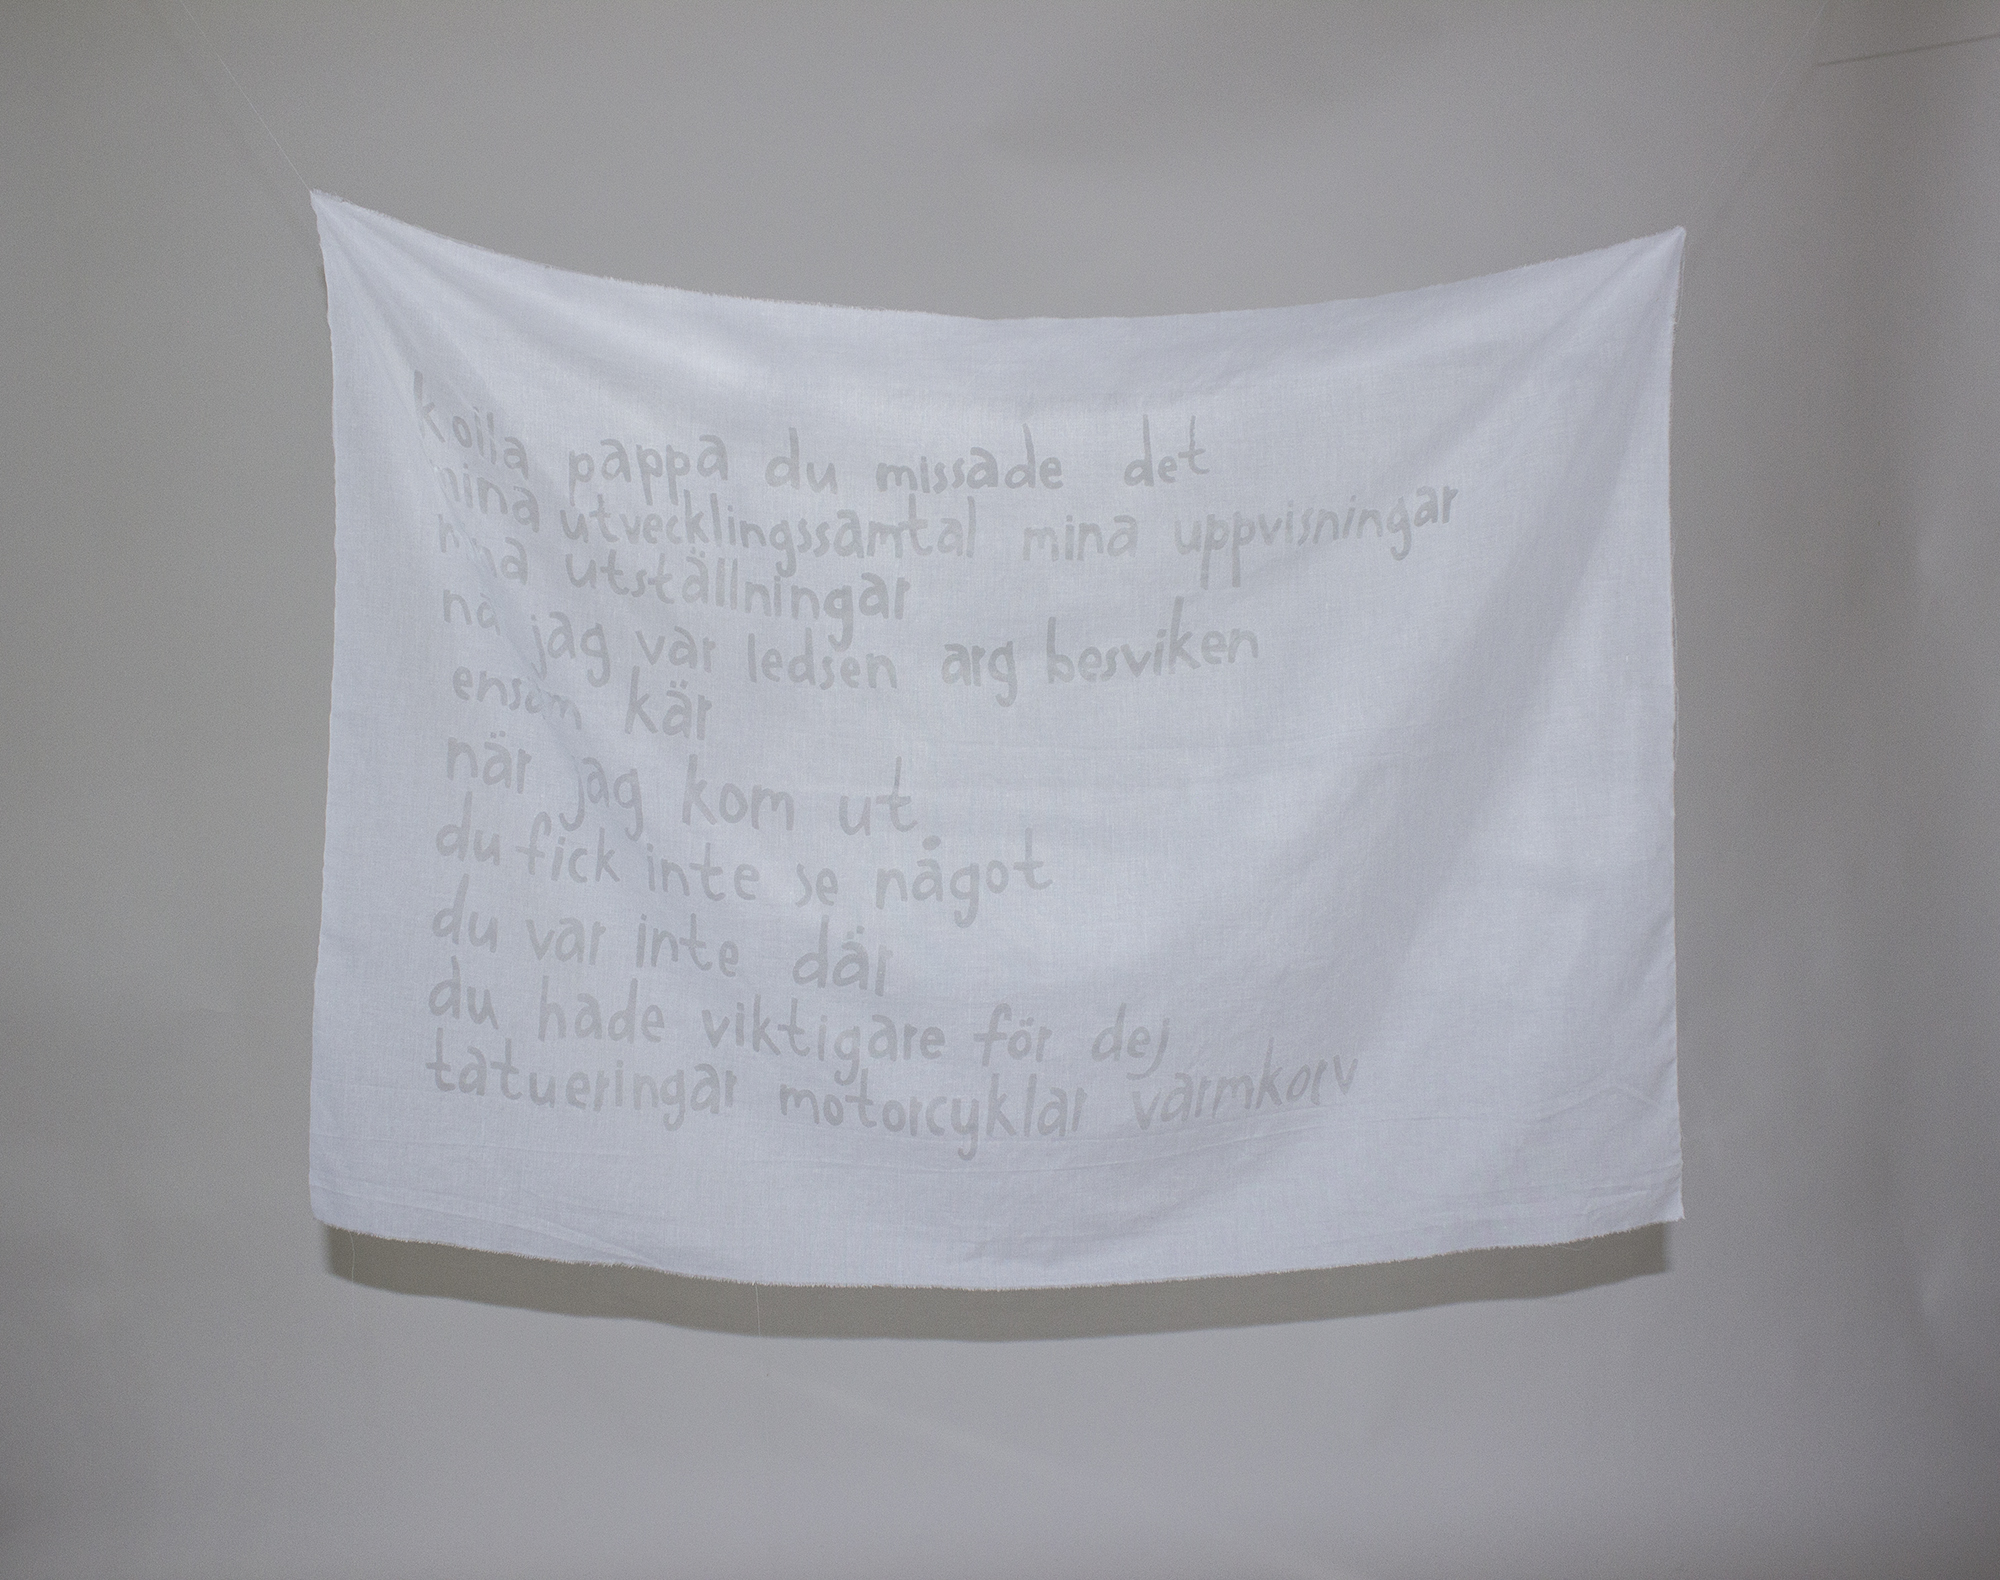 koila pappa du missade det
mina utvecklingssamtal mina uppvisningar
mina utställningar
nä jag var ledsen arg besviken
ensam kär
när jag kom ut
du fick inte se något
du var inte där
du hade viktigare för dej
tatueringar motorcyklar varmkorv